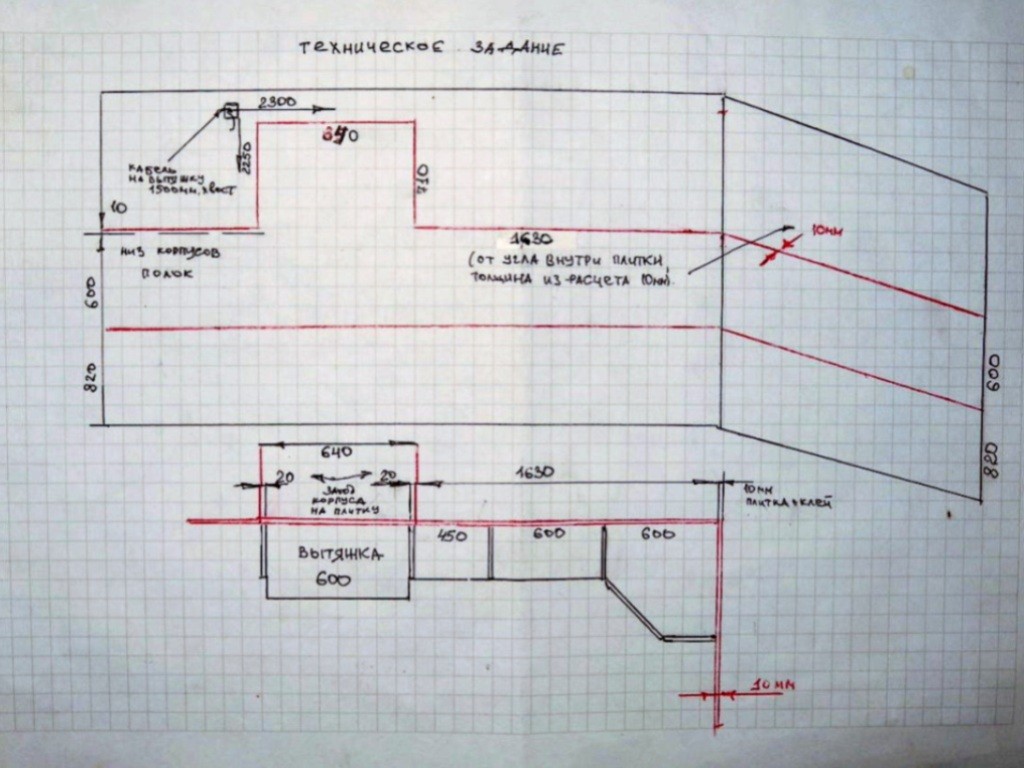 ТЕХНИЧЕСКОЕ ЗАДАНИЕ
2300
2250
КАБЕЛЬ
НА ВЫТЯЖКУ
1500мм. хвост
640
710
10
НИЗ КОРПУСОВ
ПОЛОК
600
820
1630
(ОТ УГЛА ВНУТРИ ПЛИТКИ,
ТОЛЩИНА ИЗ РАСЧЕТА 10мм).
10мм
600
820
640
20
20
ЗАХОД
КОРПУСА
НА ПЛИТКУ
1630
10мм
ПЛИТКА+КЛЕЙ
ВЫТЯЖКА
600
450
600
600
10мм